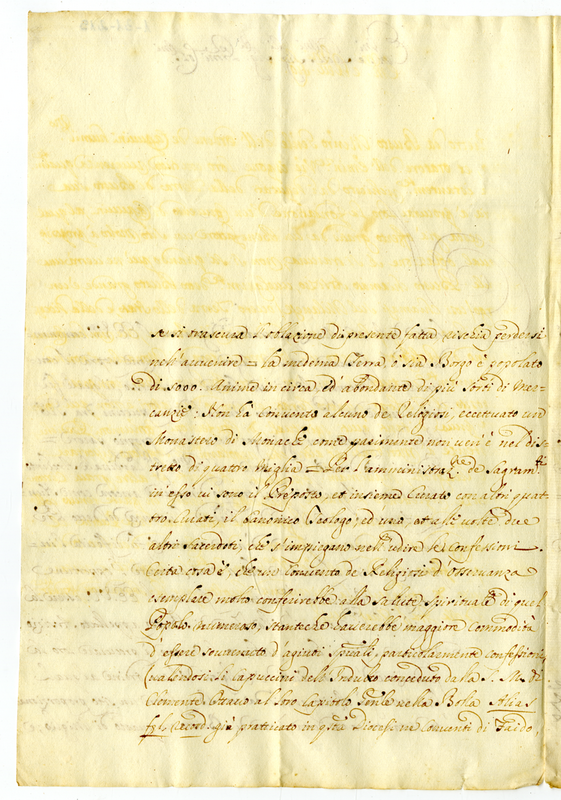 se si trascura l'oblazione di presente fatta rischia perdersi
nell'avvenire = la medema Terra, ò sia Borgo è popolato
di 5000. Anime in circa ed abondante di più sorti di Mer-
canzie: Non hà Convento alcuno de Religiosi, eccettuato un
Monastero di Monache come parimente non ven'è nel dis-
tretto di quattro miglia = Per l'amministraz.ne de Sagram.ti
in esso vi sono il Preposto, et insieme Curato con altri quat-
tro Curati, il Canonico Teologo, ed uno, et alle volte due
altri Sacerdoti, che s'impiegano nell'udire le Confessioni.
Certa cosa è, che un Convento de Religiosi d'osservanza
esemplare molto conferirebbe alla salute Spirituale di quel
Popolo numeroso, stanteche haverebbe maggiore Commodità
d'essere sovvenuto d'agiuti Sp̃uali, particolarmente confessioni,
valendosi li Capuccini dell'Indulto conceduto dalla S. M. di
Clemente Ottavo al loro Capitolo Gñle nella Bolla Alias
fel. Record. già praticato in q̃sta Diocesi ne Conventi di Faido,